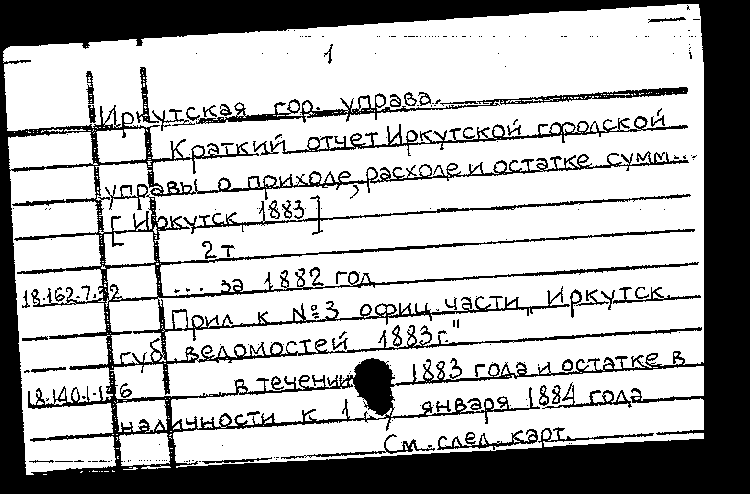 1
Иркутская гор. управа.
Краткий отчет Иркутской городской
управы о приходе, расходе и остатке сумм...
[Иркутск, 1883]
2 т
18.162.7.32 ... за 1882 год
Прил к №3 офиц. части „Иркутск.
губ. ведомостей 1883г."
18.140.1.136 в течении 1883 года и остатке в
наличности к 1 января 1884 года
См. след. карт.